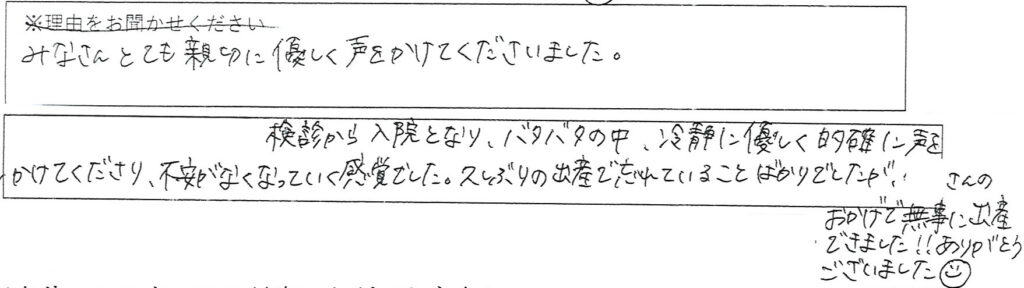 ※理由をお聞かせください
みなさんとても親切に優しく声をかけてくださいました。
検診から入院となり、バタバタの中、冷静に優しく的確に声を
かけてくださり、不安がなくなっていく感覚でした。久しぶりの出産で忘れていることばかりでしたが、
さんの
おかげで無事に出産
できました!!ありがとう
ございました☺